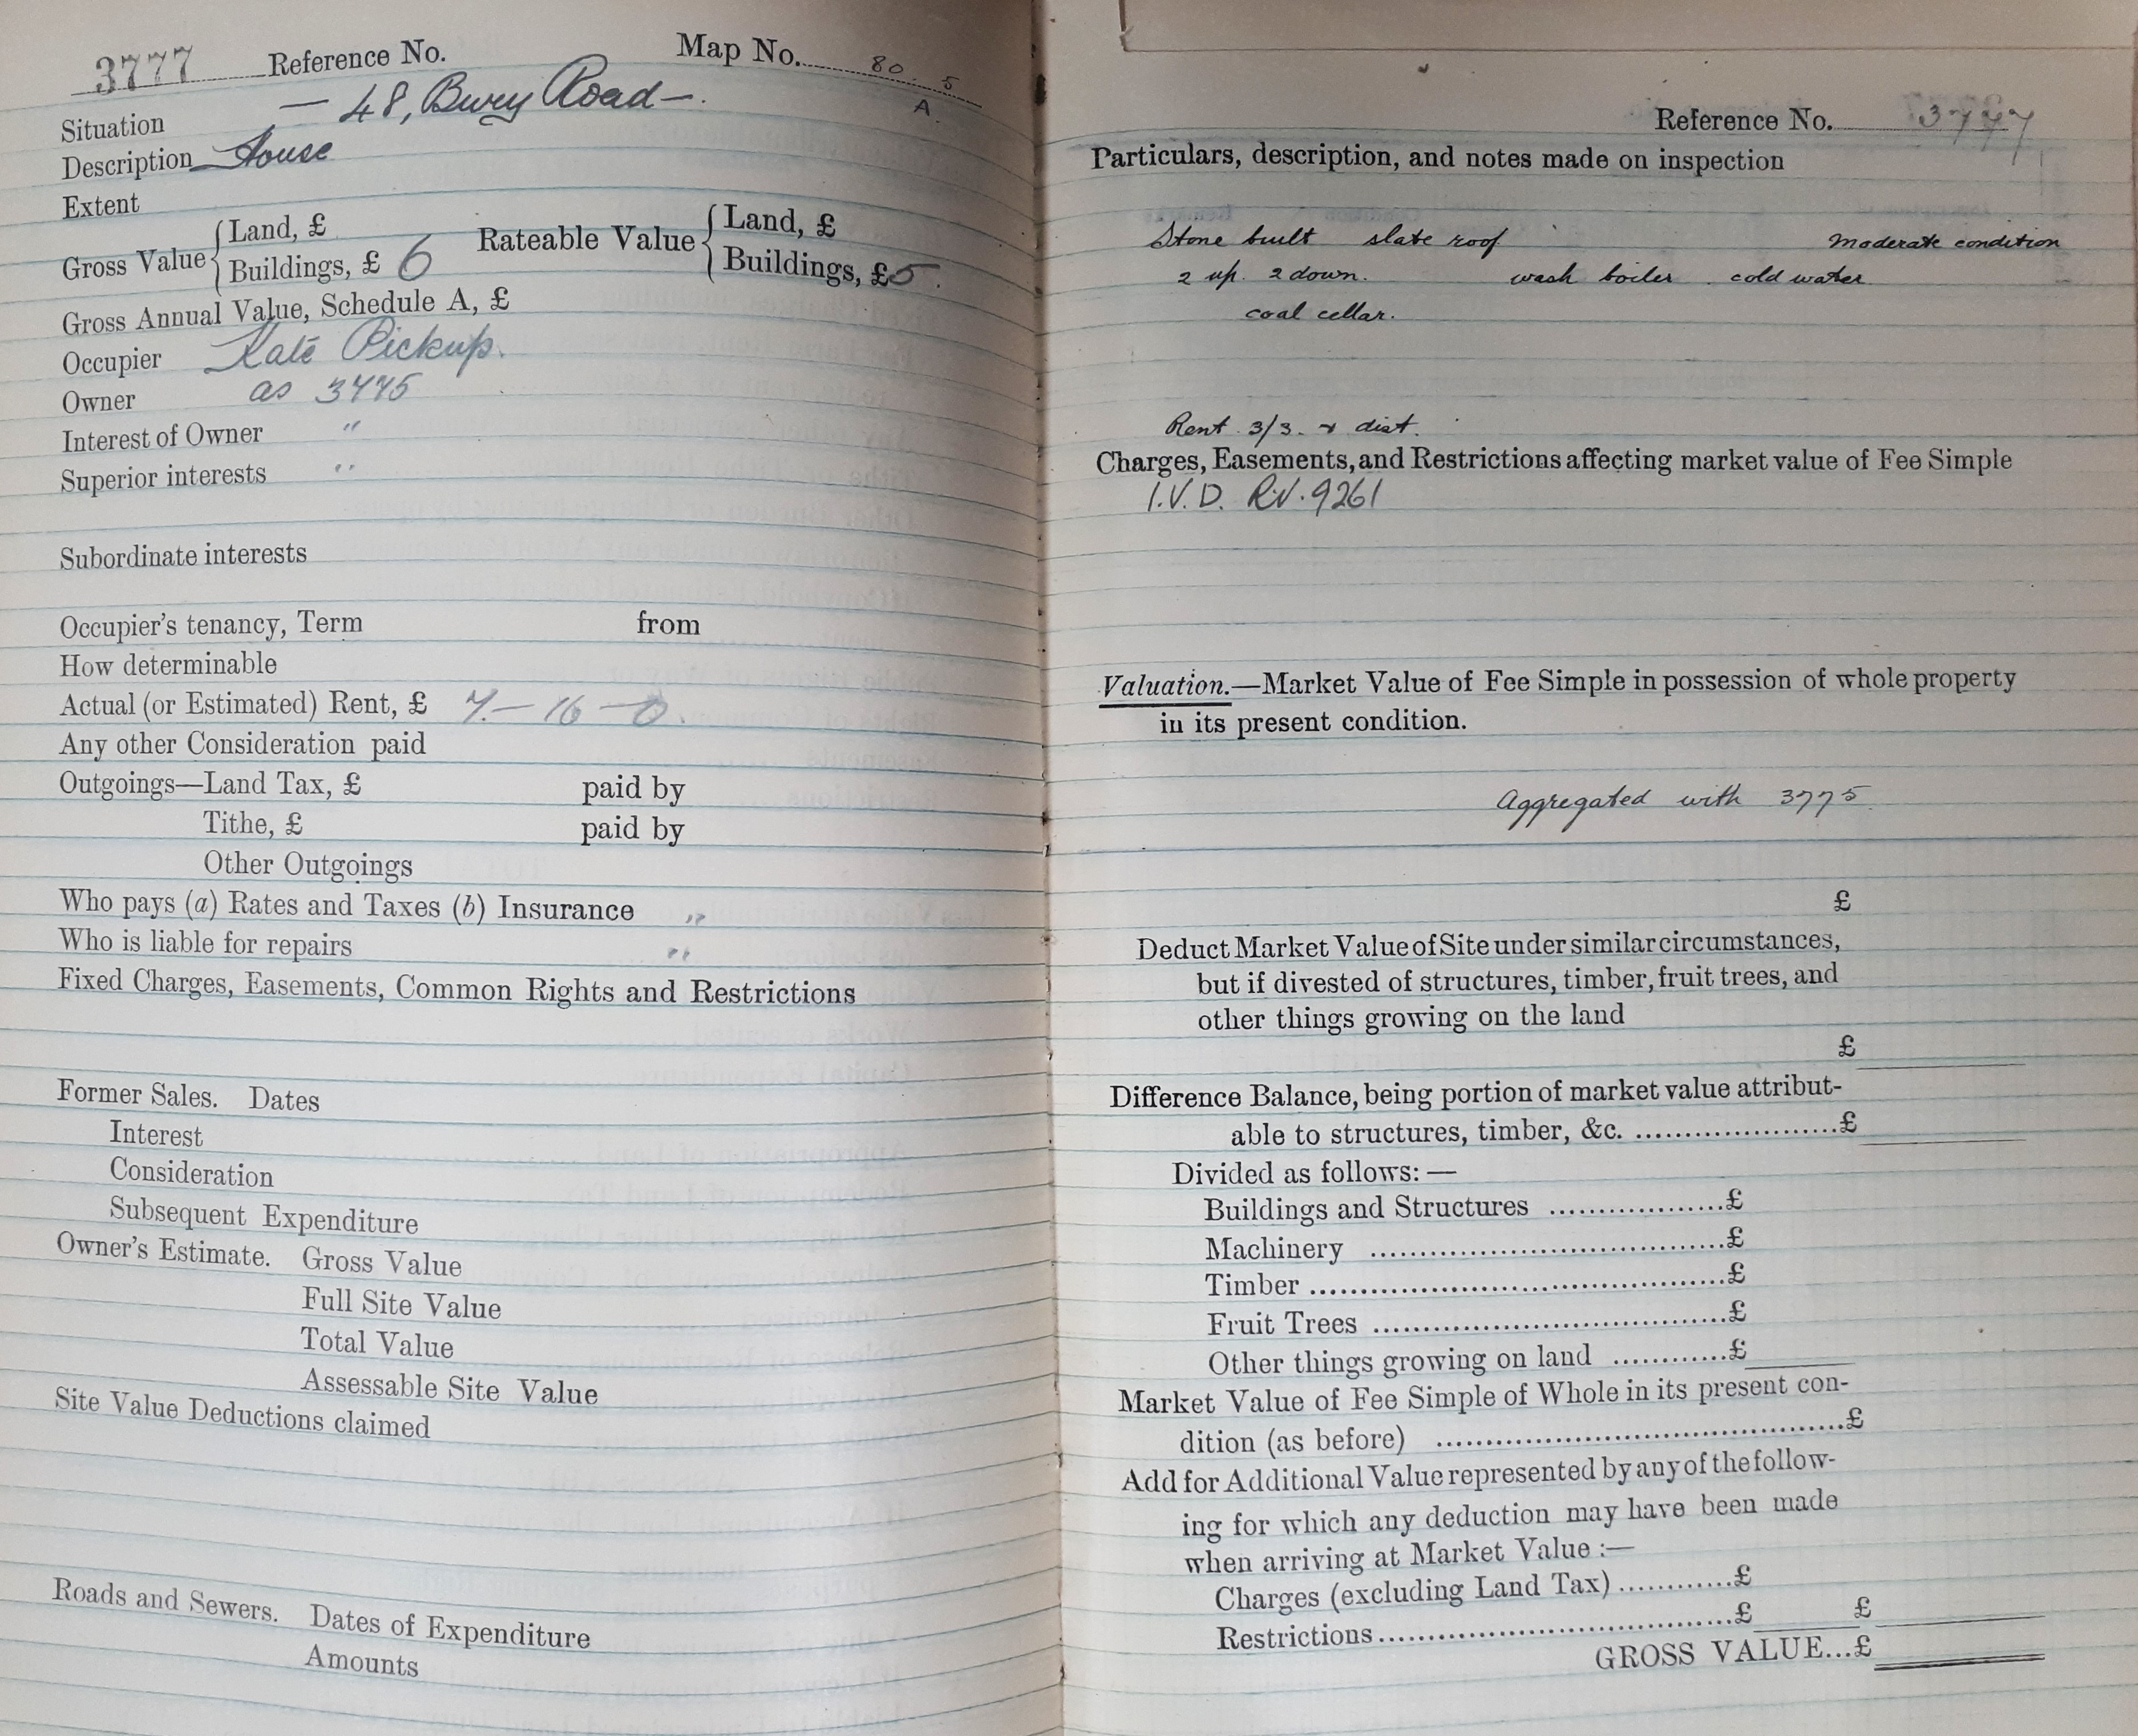 3777 Reference No. Map No. 80. 5
A.
Situation — 48, Bury Road —.
Description House
Extent
Gross Value { Land, £ Rateable Value { Land, £
Buildings, £ 6 Buildings, £5.
Gross Annual Value, Schedule A, £
Occupier Kate Pickup.
Owner as 3775
Interest of Owner "
Superior interests "
Subordinate interests
Occupier's tenancy, Term from
How determinable
Actual (or Estimated) Rent, £ 7 – 16 – 0.
Any other Consideration paid
Outgoings—Land Tax, £ paid by
Tithe, £ paid by
Other Outgoings
Who pays (a) Rates and Taxes (b) Insurance "
Who is liable for repairs "
Fixed Charges, Easements, Common Rights and Restrictions
Former Sales. Dates
Interest
Consideration
Subsequent Expenditure
Owner's Estimate. Gross Value
Full Site Value
Total Value
Assessable Site Value
Site Value Deductions claimed
Roads and Sewers. Dates of Expenditure
Amounts
Reference No. 3777
Particulars, description, and notes made on inspection
Stone built slate roof moderate condition
2 up. 2 down. wash boiler. cold water.
coal cellar.
Rent 3/3. + dist.
Charges, Easements, and Restrictions affecting market value of Fee Simple
I.V.D. RN. 9261
Valuation.—Market Value of Fee Simple in possession of whole property
in its present condition.
Aggregated with 3775
£
Deduct Market Value of Site under similar circumstances,
but if divested of structures, timber, fruit trees, and
other things growing on the land
£
Difference Balance, being portion of market value attribut-
able to structures, timber, &c. .....................£
Divided as follows:—
Buildings and Structures ..................£
Machinery .....................................£
Timber ...........................................£
Fruit Trees .....................................£
Other things growing on land ............£
Market Value of Fee Simple of Whole in its present con-
dition (as before) ..........................................£
Add for Additional Value represented by any of the follow-
ing for which any deduction may have been made
when arriving at Market Value :—
Charges (excluding Land Tax) ............£
Restrictions .....................................£ £
GROSS VALUE...£